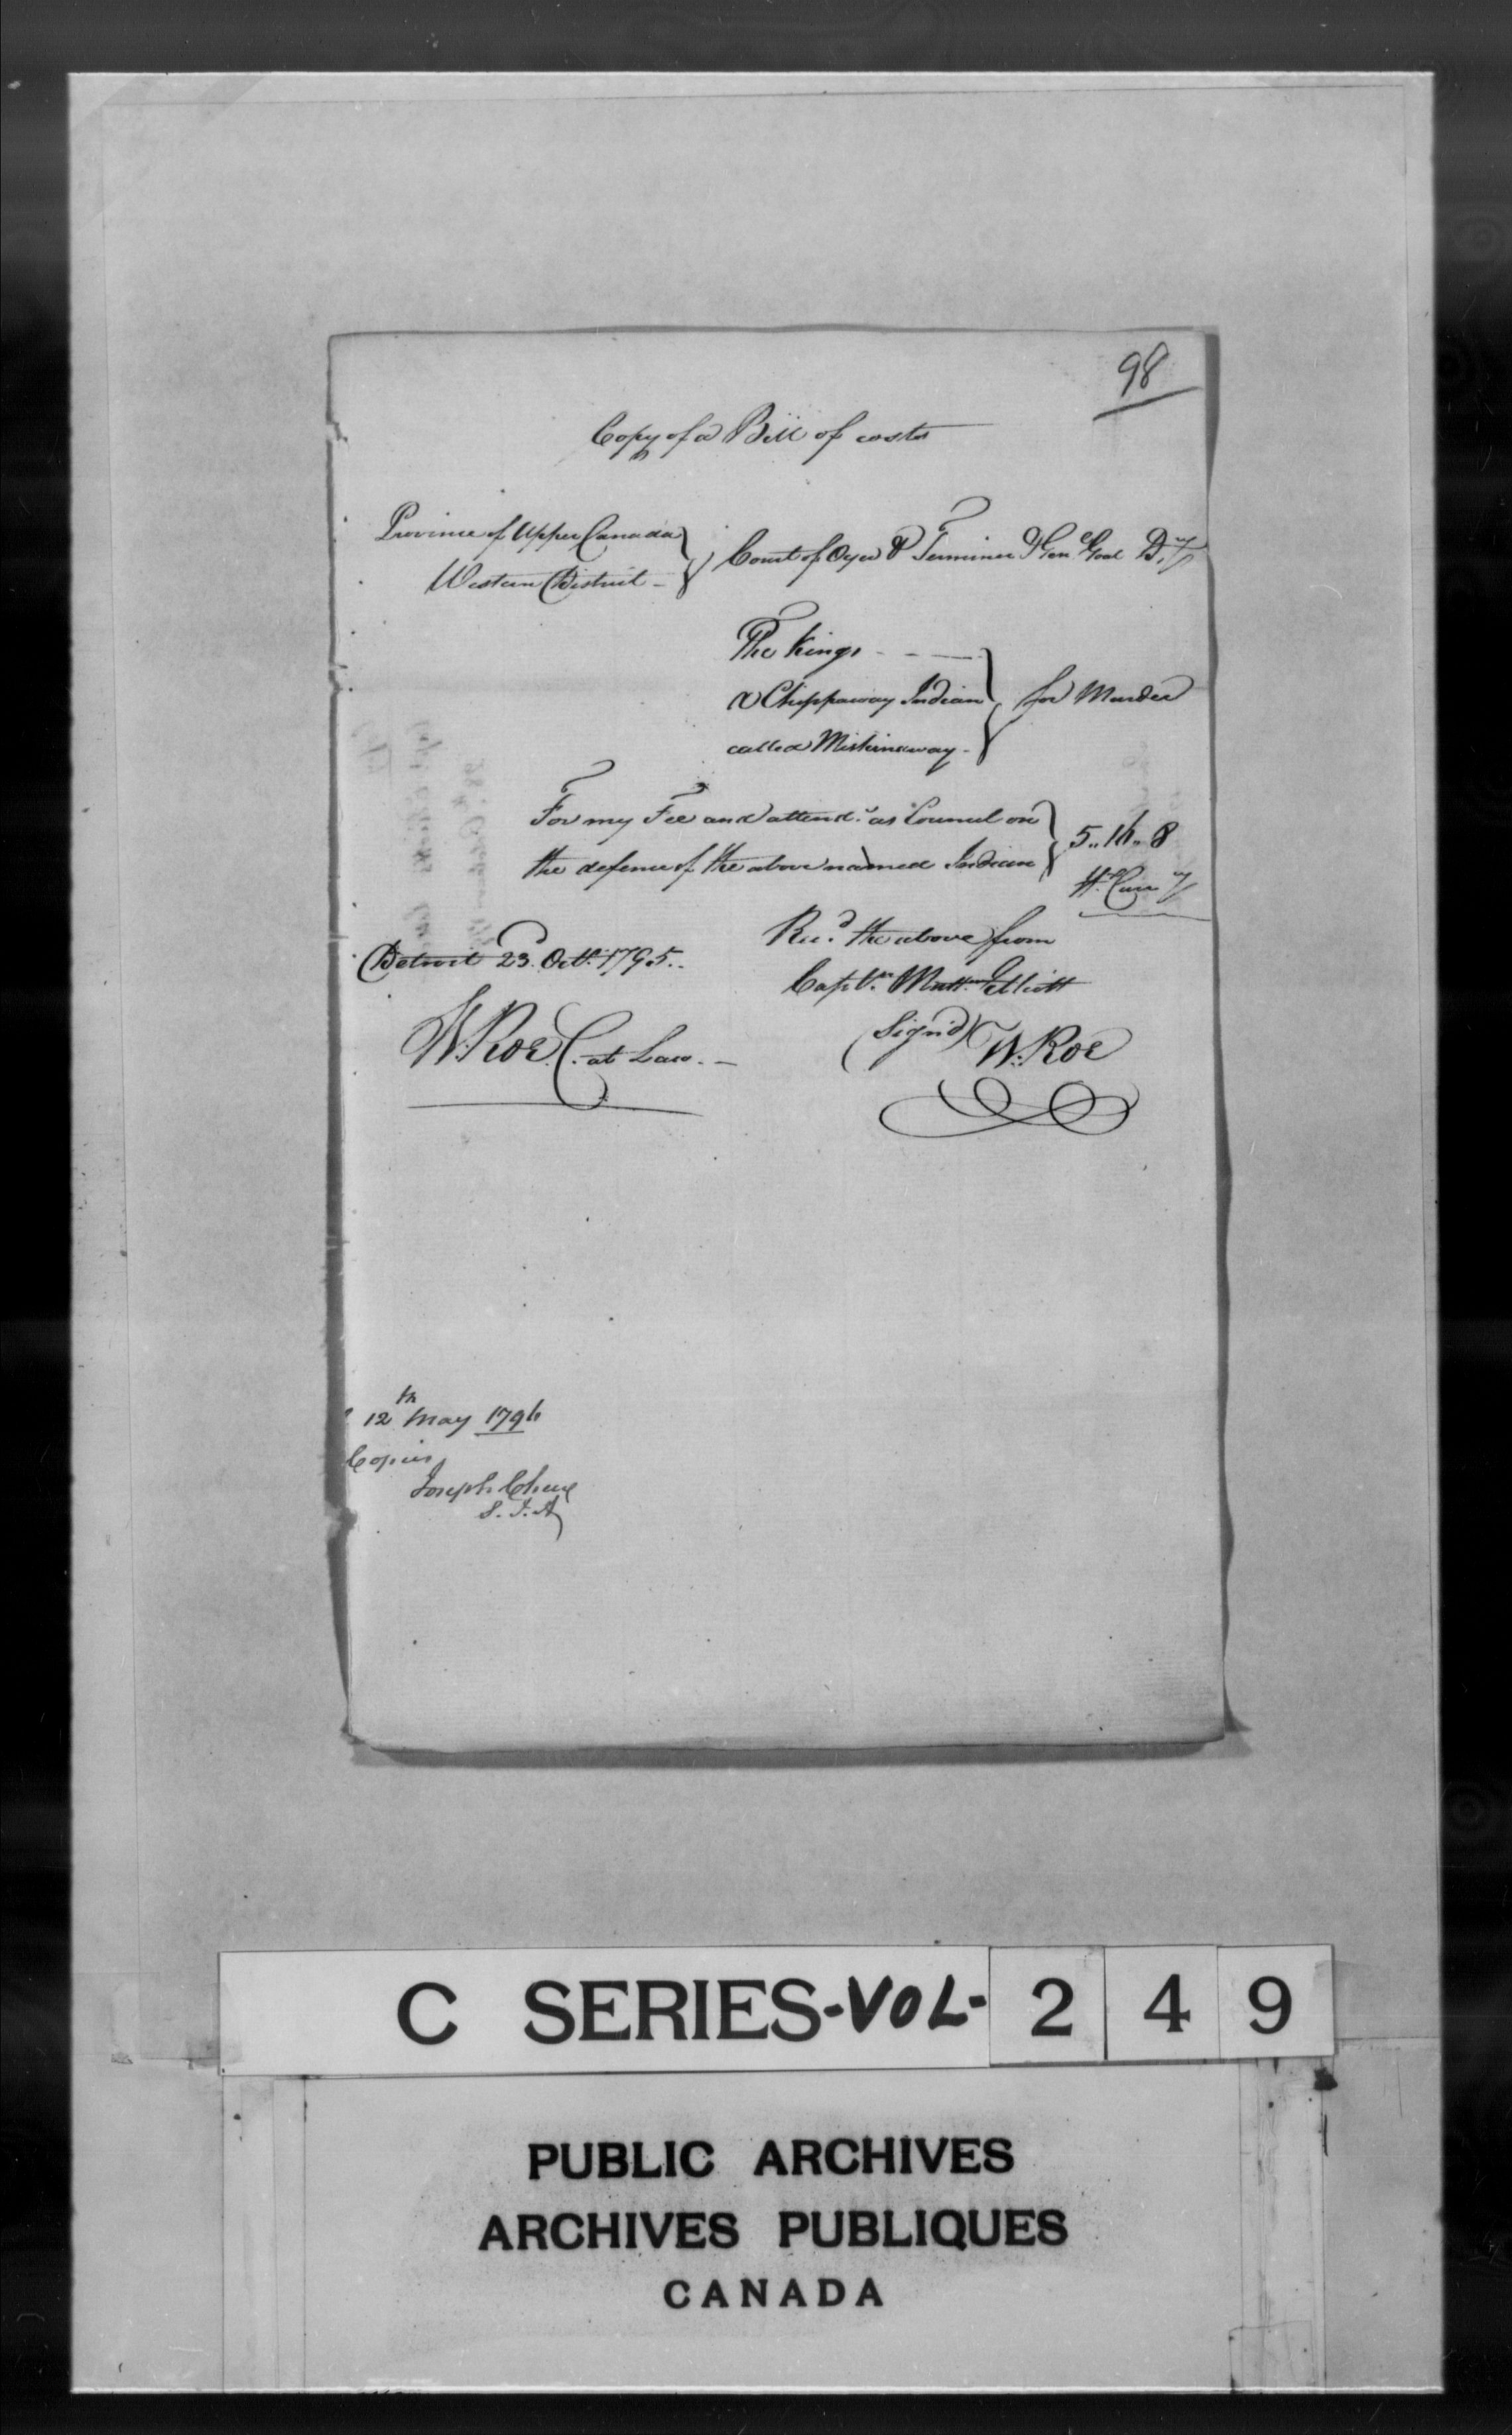 98
Copy of a Bill of costs
Province of Upper Canada
Western District -
Court of Oyer & Terminer & Gen.l Goal D.ry
The King
v Chippaway Indian
called Mishinaway -
for Murder
For my Fee and attend.ce as Councel on
the defence of the above named Indian
5,, 16,, 8
H.x Curr.y
Detroit 23.d Octr. 1795..
Rec.d the above from
Capt.n Matt.w Elliott
W: Roe C. at Law. -
(Sign'd) W: Roe
12th May 1796
Copies
Joseph Chew
S. I. A
C SERIES-VOL-249
PUBLIC ARCHIVES
ARCHIVES PUBLIQUES
CANADA